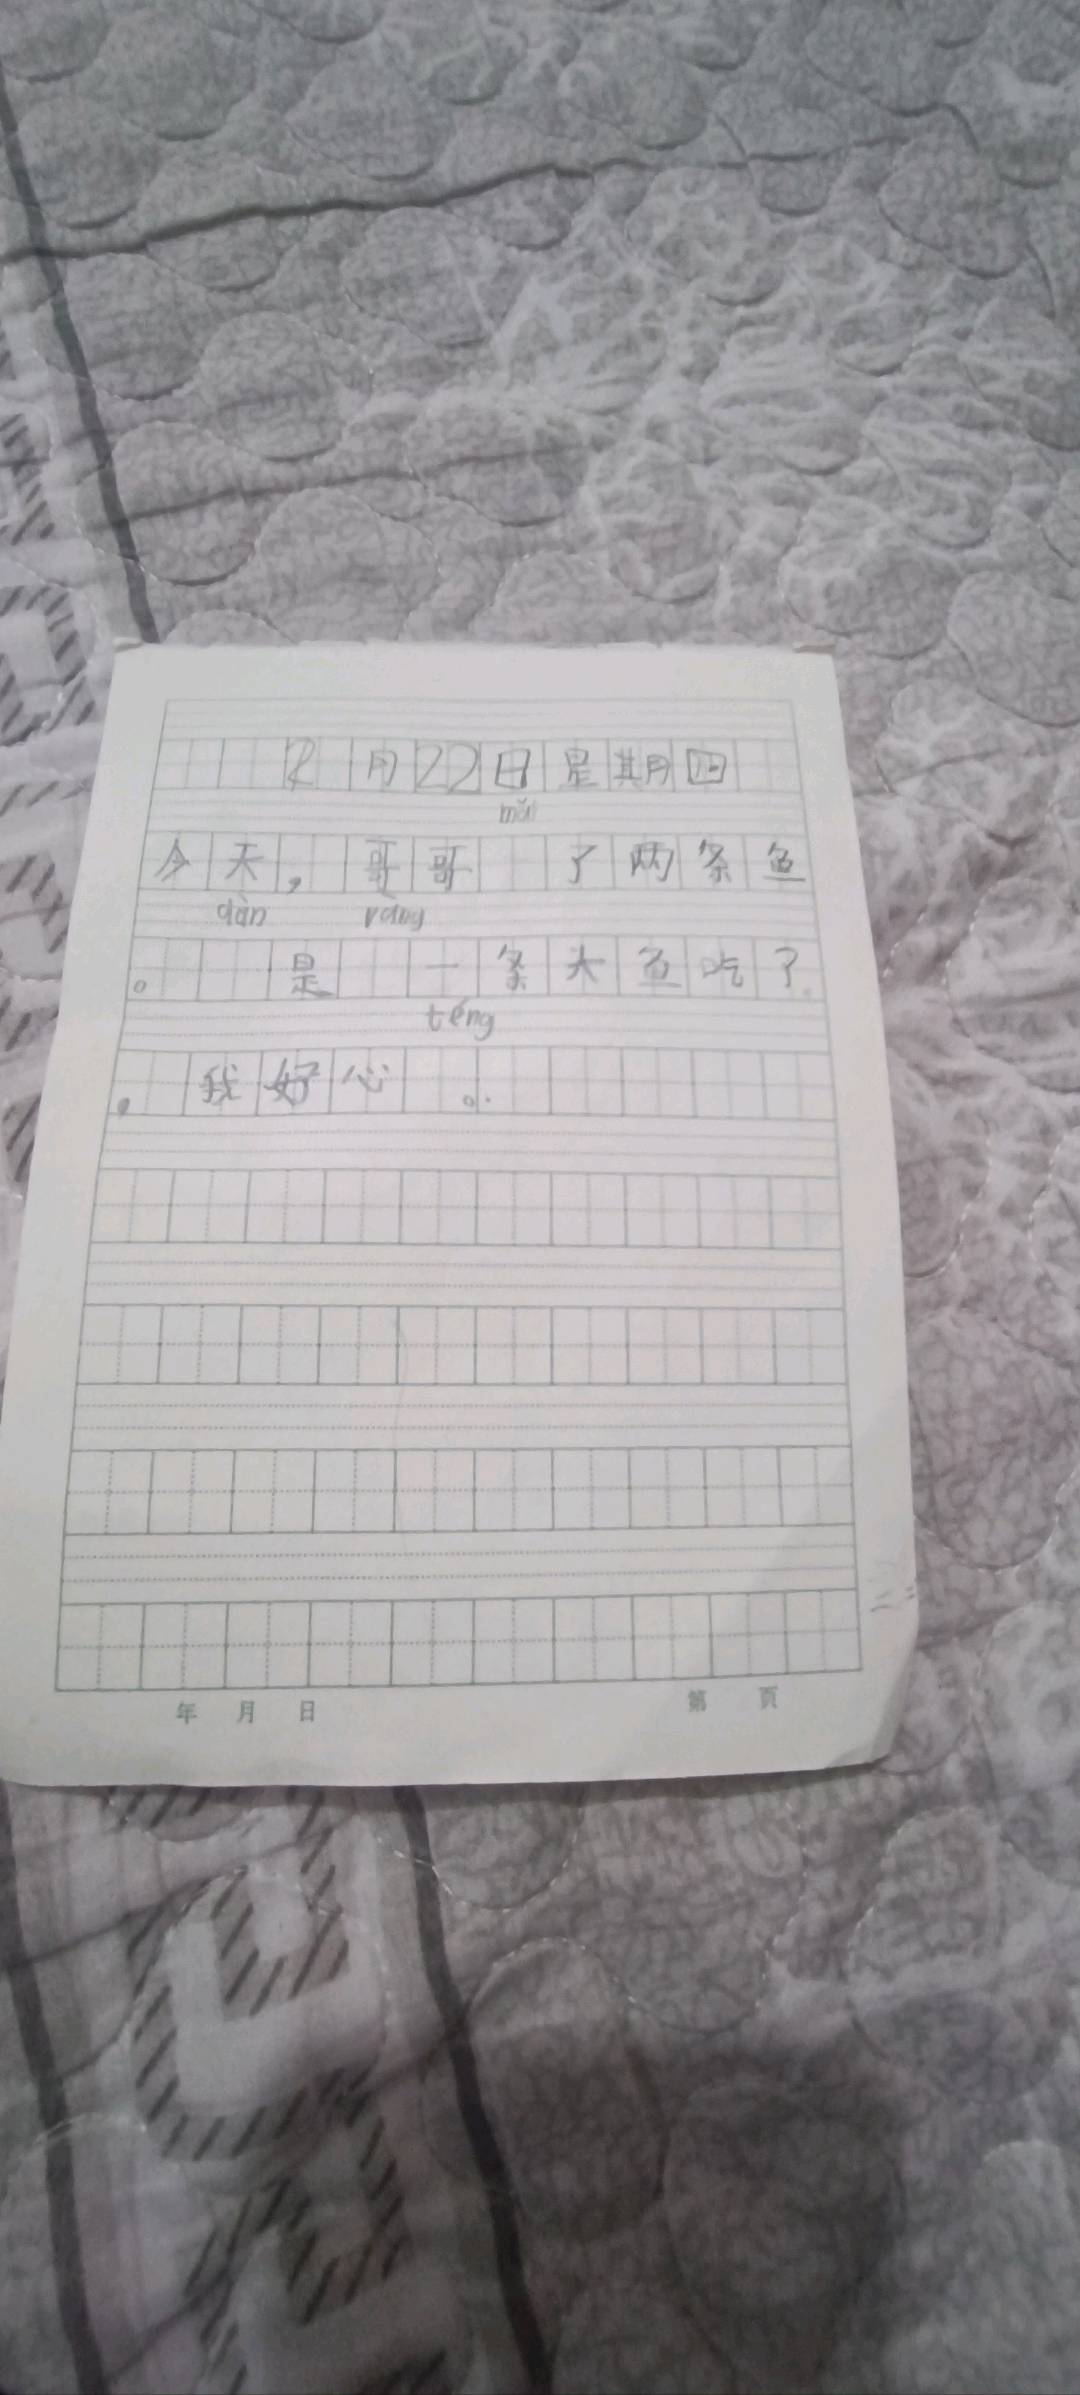 2月22日星期四
mǎi
今天，哥哥 了两条鱼
dàn ràng
。 是 一条大鱼吃了
téng
，我好心 。
年 月 日 第 页